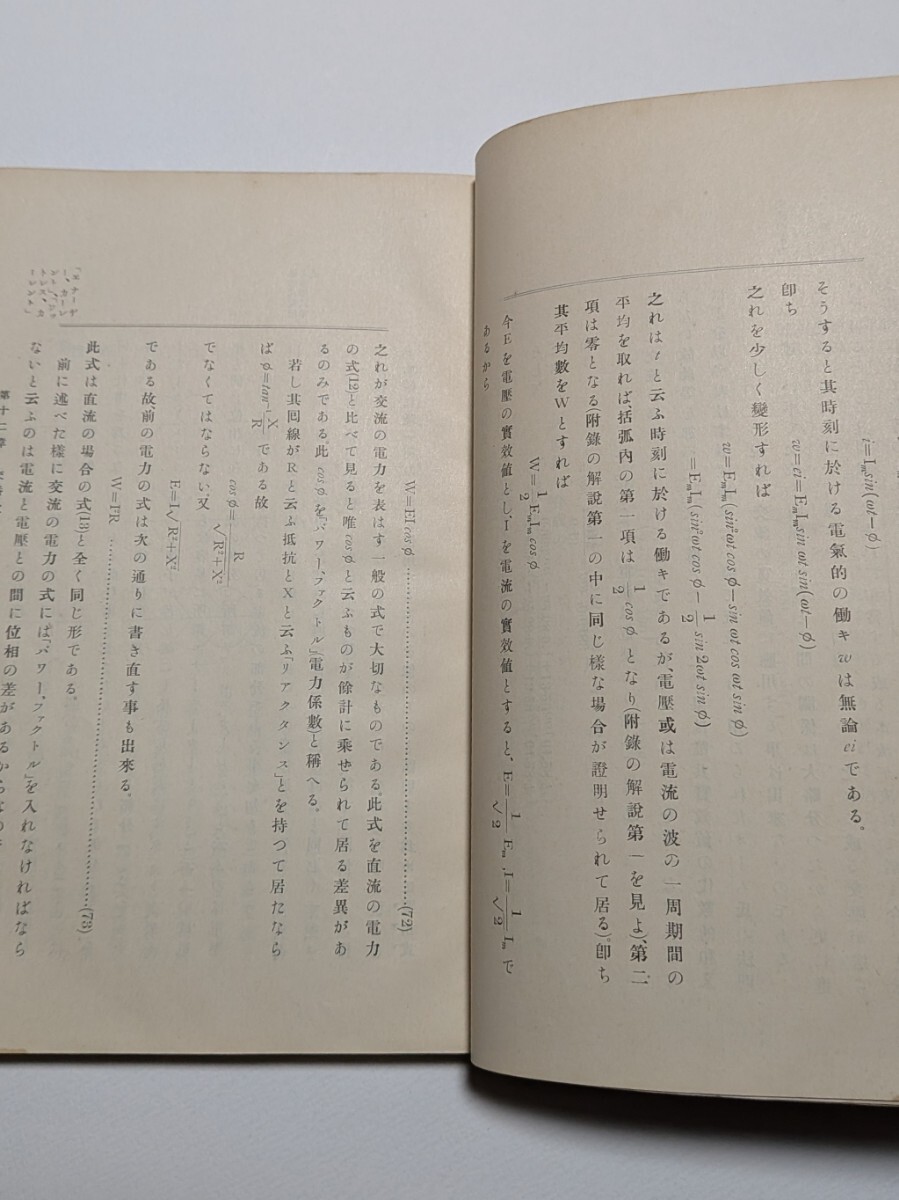 i=Iₘsin(ωt−φ)
そうすると其時刻に於ける電氣的の働キwは無論eiである。
卽ち
w=ei=EₘIₘsin ωt sin(ωt−φ)
之れを少しく變形すれば
w=EₘIₘ(sin²ωt cos φ−sin ωt cos ωt sin φ)
=EₘIₘ(sin²ωt cos φ−1/2 sin 2ωt sin φ)
之れはtと云ふ時刻に於ける働キであるが、電壓或は電流の波の一周期間の
平均を取れば括弧內の第一項は1/2 cos φとなり(附錄の解說第一を見よ)、第二
項は零となる(附錄の解說第一の中に同じ樣な場合が證明せられて居る)。卽ち
其平均數をWとすれば
W=1/2 EₘIₘ cos φ
今Eを電壓の實效値とし、Iを電流の實效値とすると、E=1/√2 Eₘ, I=1/√2 Iₘで
あるから
W=EI cos φ……………(72)
之れが交流の電力を表はす一般の式で大切なものである。此式を直流の電力
の式(12)と比べて見ると唯cos φと云ふものが餘計に乘せられて居る差異があ
るのみである。此cos φを「パワー、ファクトル」(電力係數)と稱へる。
若し其囘線がRと云ふ抵抗とXと云ふ「リアクタンス」とを持つて居たなら
ばφ=tan⁻¹X/Rである故
cos φ=R/√R²+X²
でなくてはならない、又
E=I√R²+X²
である故、前の電力の式は次の通りに書き直す事も出來る。
W=I²R……………(73)
此式は直流の場合の式(13)と全く同じ形である。
前に述べた樣に交流の電力の式には「パワー、ファクトル」を入れなければなら
ないと云ふのは電流と電壓との間に位相の差があるからなので
第十二章